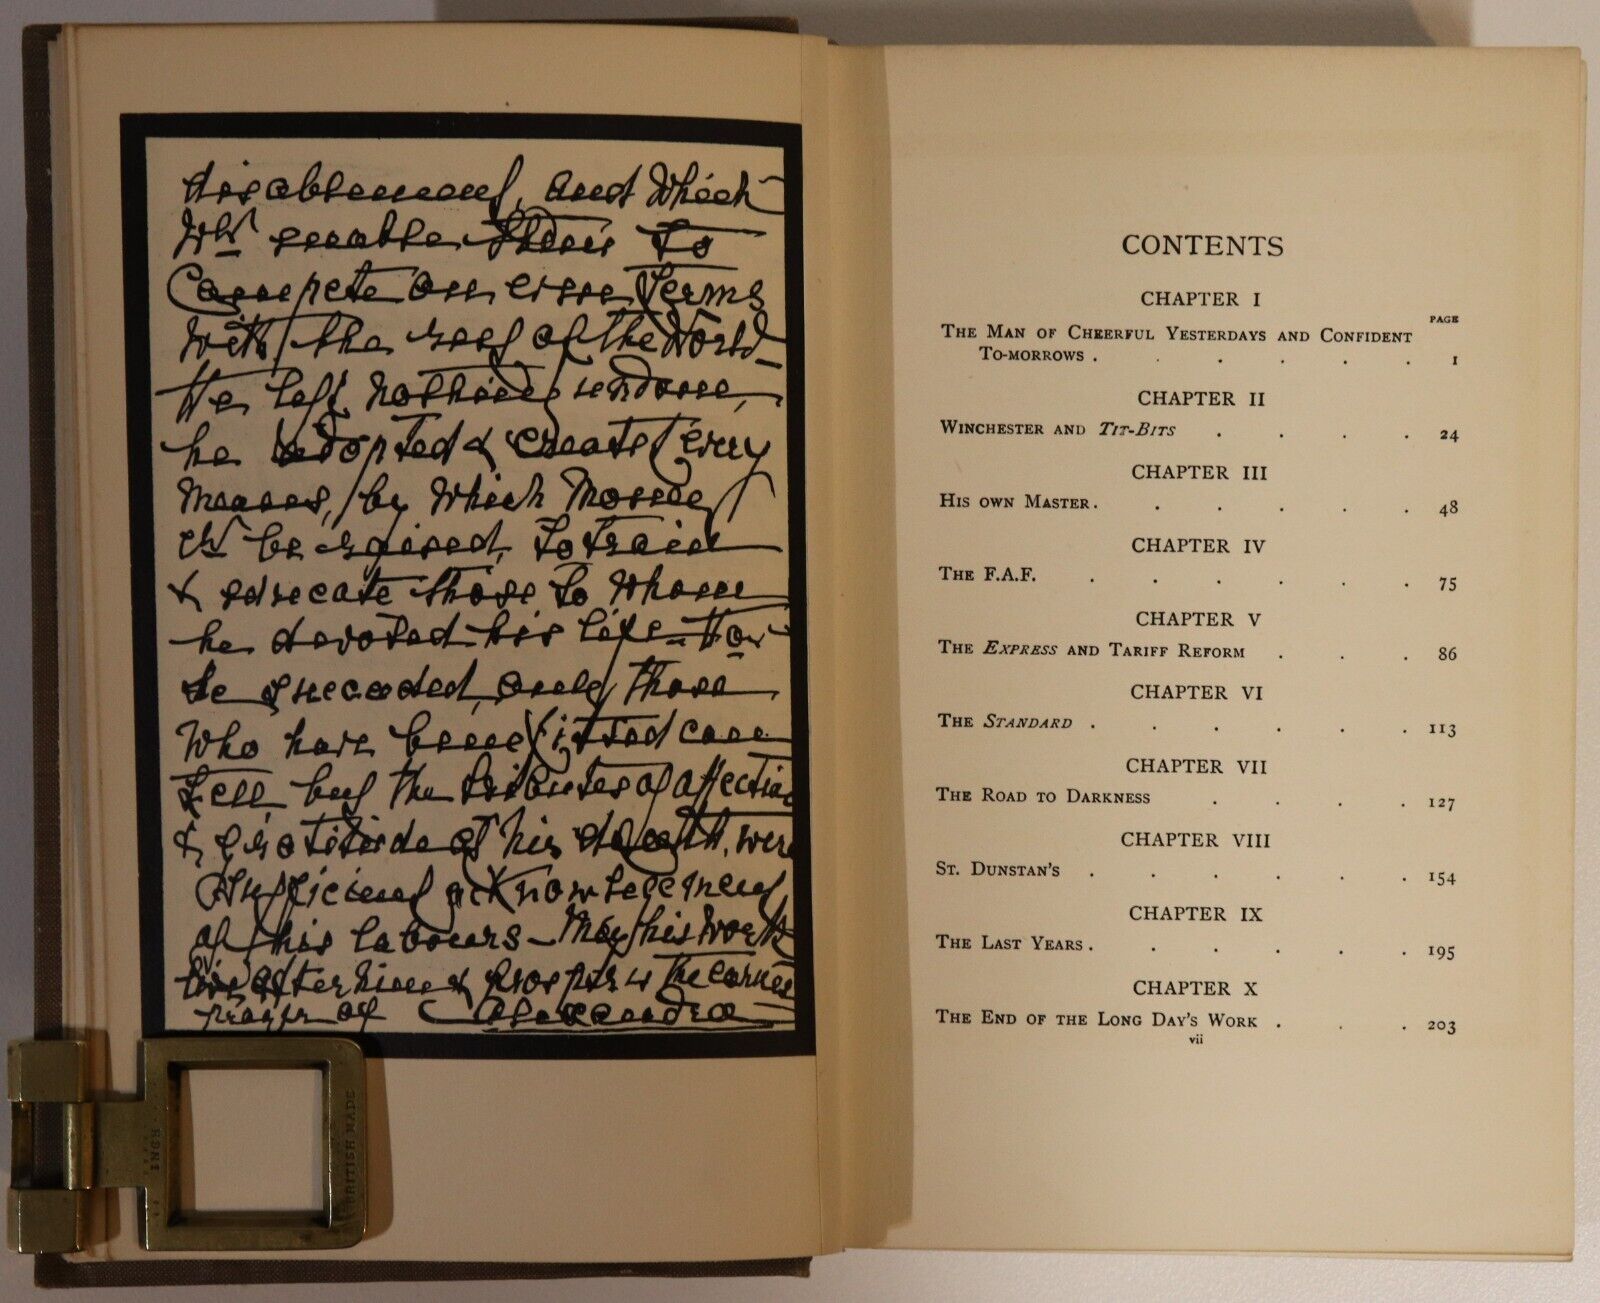 disablement, and Which
Wd. enable Them To
Compete on even Terms
With the rest of the World
He left nothing undone,
he adopted & created every
Means, by Which Money
cd be raised, To train
& educate those To Whom
he devoted his life - How
he succeeded, only those
Who have benefitted can
Tell, but the Tributes of affection
& gratitude at his death, were
Sufficient acknowledgement
of his labours - May his Work
live after him & prosper is The earnest
prayer of Alexandra
CONTENTS
CHAPTER I
PAGE
THE MAN OF CHEERFUL YESTERDAYS AND CONFIDENT
TO-MORROWS . . . . . . 1
CHAPTER II
WINCHESTER AND TIT-BITS . . . . 24
CHAPTER III
HIS OWN MASTER . . . . . . 48
CHAPTER IV
THE F.A.F. . . . . . . 75
CHAPTER V
THE EXPRESS AND TARIFF REFORM . . . 86
CHAPTER VI
THE STANDARD . . . . . . 113
CHAPTER VII
THE ROAD TO DARKNESS . . . . 127
CHAPTER VIII
ST. DUNSTAN'S . . . . . . 154
CHAPTER IX
THE LAST YEARS . . . . . . 195
CHAPTER X
THE END OF THE LONG DAY'S WORK . . . 203
vii
BRITISH MADE